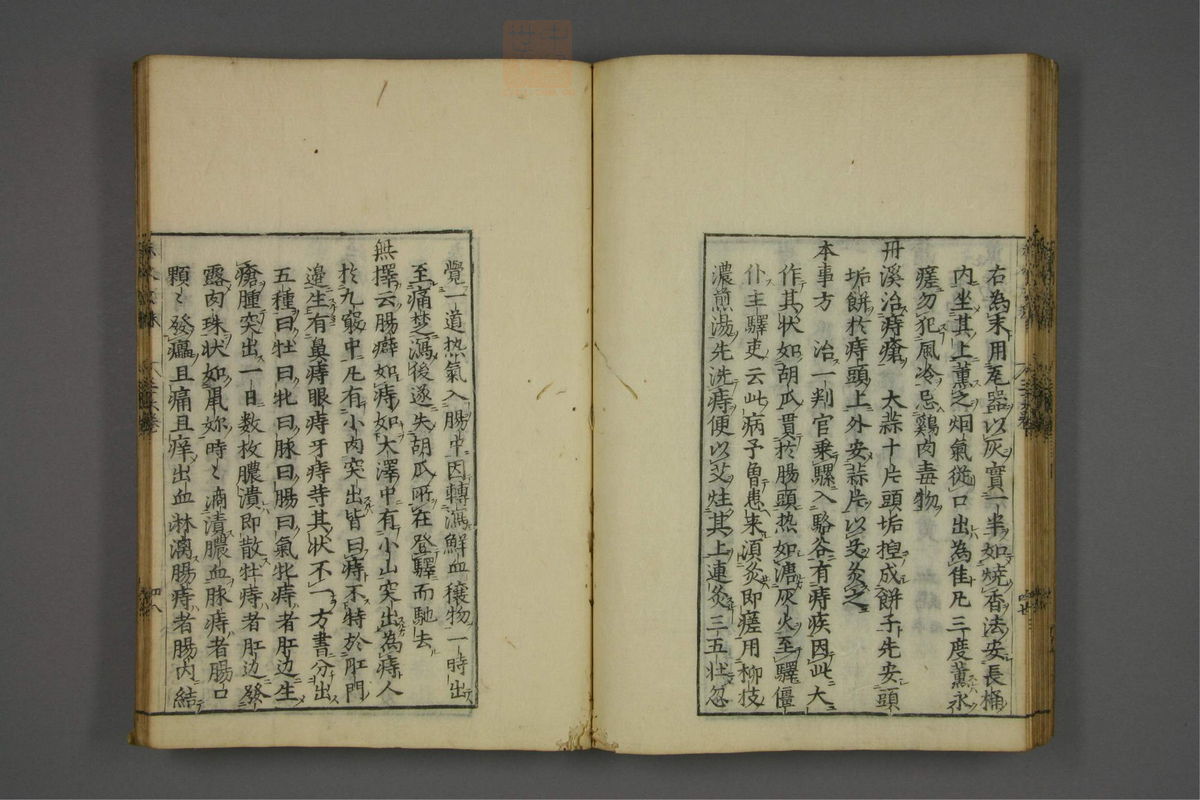 右為末用瓦器以灰實一半如燒香法安長桶
内坐其上薰之烟氣從口出為佳凡三度薰永
瘥勿犯風冷忌鷄肉毒物
丹溪治痔瘡　大蒜十片頭垢揑成餅子先安頭
垢餅於痔頭上外安蒜片以艾灸之
本事方　治一判官乗騾入駱谷有痔疾因此大
作其状如胡瓜貫於腸頭热如溏灰火至驛僵
仆主驛吏云此病予魯患来湏灸即瘥用柳枝
濃煎湯先洗痔便以艾炷其上連灸三五壮忽
覺一道热氣入腸中因轉瀉鮮血穢物一時出
至痛楚瀉後遂失胡瓜所在登驛而馳去
無擇云腸癖如痔如大澤中有小山突出為痔人
於九竅中凡有小肉突出皆曰痔不特於肛門
邉生有鼻痔眼痔牙痔䓁其状不一方書分出
五種曰牡曰牝曰脉曰腸曰氣牝痔者肛边生
瘡腫突出一日数枚膿潰即散牡痔者肛边發
露肉珠状如鼠妳時〻滴漬膿血脉痔者腸口
顆〻發㿔且痛且痒出血淋瀝腸痔者腸内結